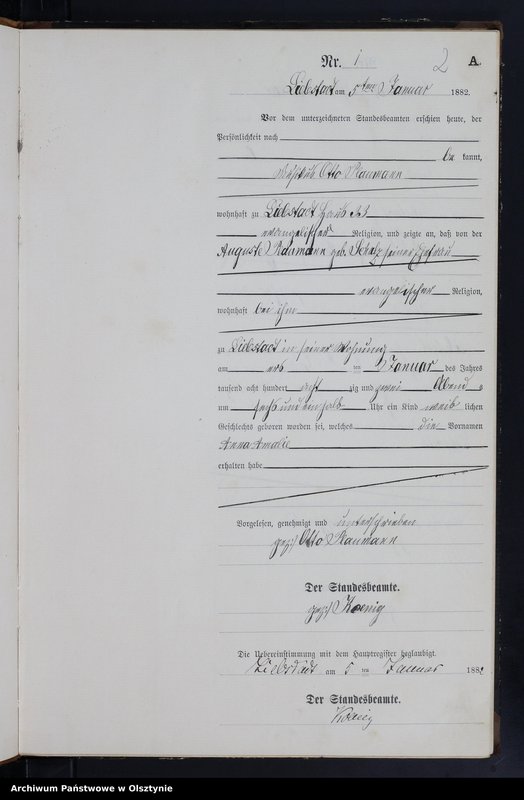 Nr. 1 2 A.
Liebstadt am 5ten Januar 1882.
Vor dem unterzeichneten Standesbeamten erschien heute, der
Persönlichkeit nach
be kannt,
Otto Naumann
wohnhaft zu Liebstadt Haus
evangelischer Religion, und zeigte an, daß von der
Auguste Naumann geb. seiner Ehefrau
evangelischer Religion,
wohnhaft bei ihm
zu Liebstadt in seiner Wohnung
am ten Januar des Jahres
tausend acht hundert acht zig und zwei Abend s
um sechs und ein halb Uhr ein Kind weib lichen
Geschlechts geboren worden sei, welches die Vornamen
Anna Amalie
erhalten habe
Vorgelesen, genehmigt und unterschrieben
gez. Otto Naumann
Der Standesbeamte.
gez. Koenig
Die Uebereinstimmung mit dem Hauptregister beglaubigt.
Liebstadt am 5 ten Januar 1882
Der Standesbeamte.
Koenig
Archiwum Państwowe w Olsztynie